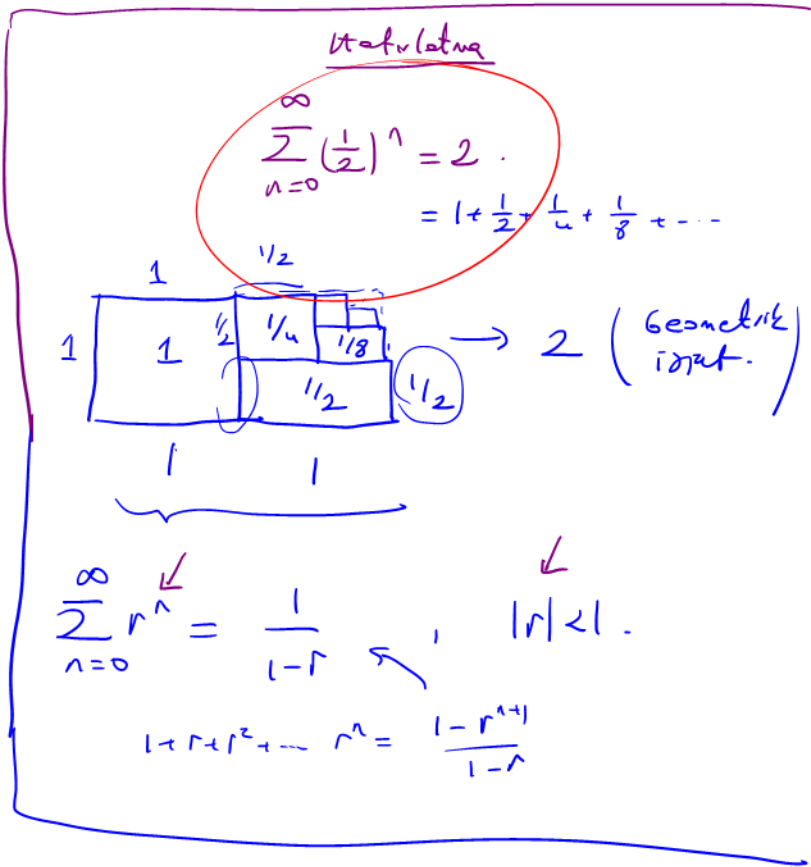 Hatırlatma
∞
∑ (1/2)ⁿ = 2 .
n=0
= 1 + 1/2 + 1/4 + 1/8 + ...
1 1/2
1 1 1/2 1/4 1/8 → 2 (Geometrik
ispat.)
1/2 1/2
1 1
∞
∑ rⁿ = 1/(1-r) , |r|<1 .
n=0
1+r+r²+... rⁿ = (1-rⁿ⁺¹)/(1-r)